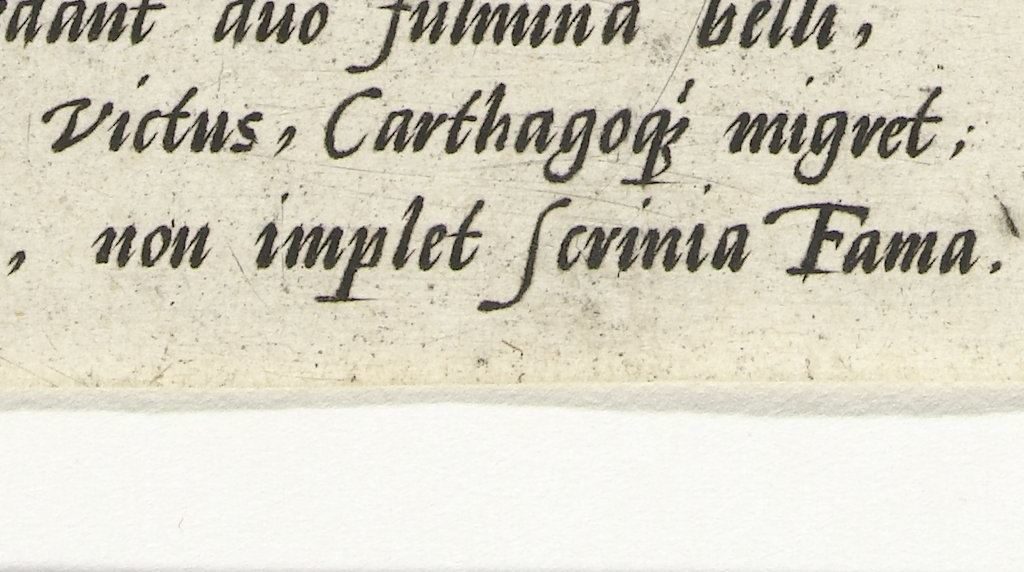 dant duo fulmina belli,
Victus, Carthagoq; migret;
, non implet ſcrinia Fama.